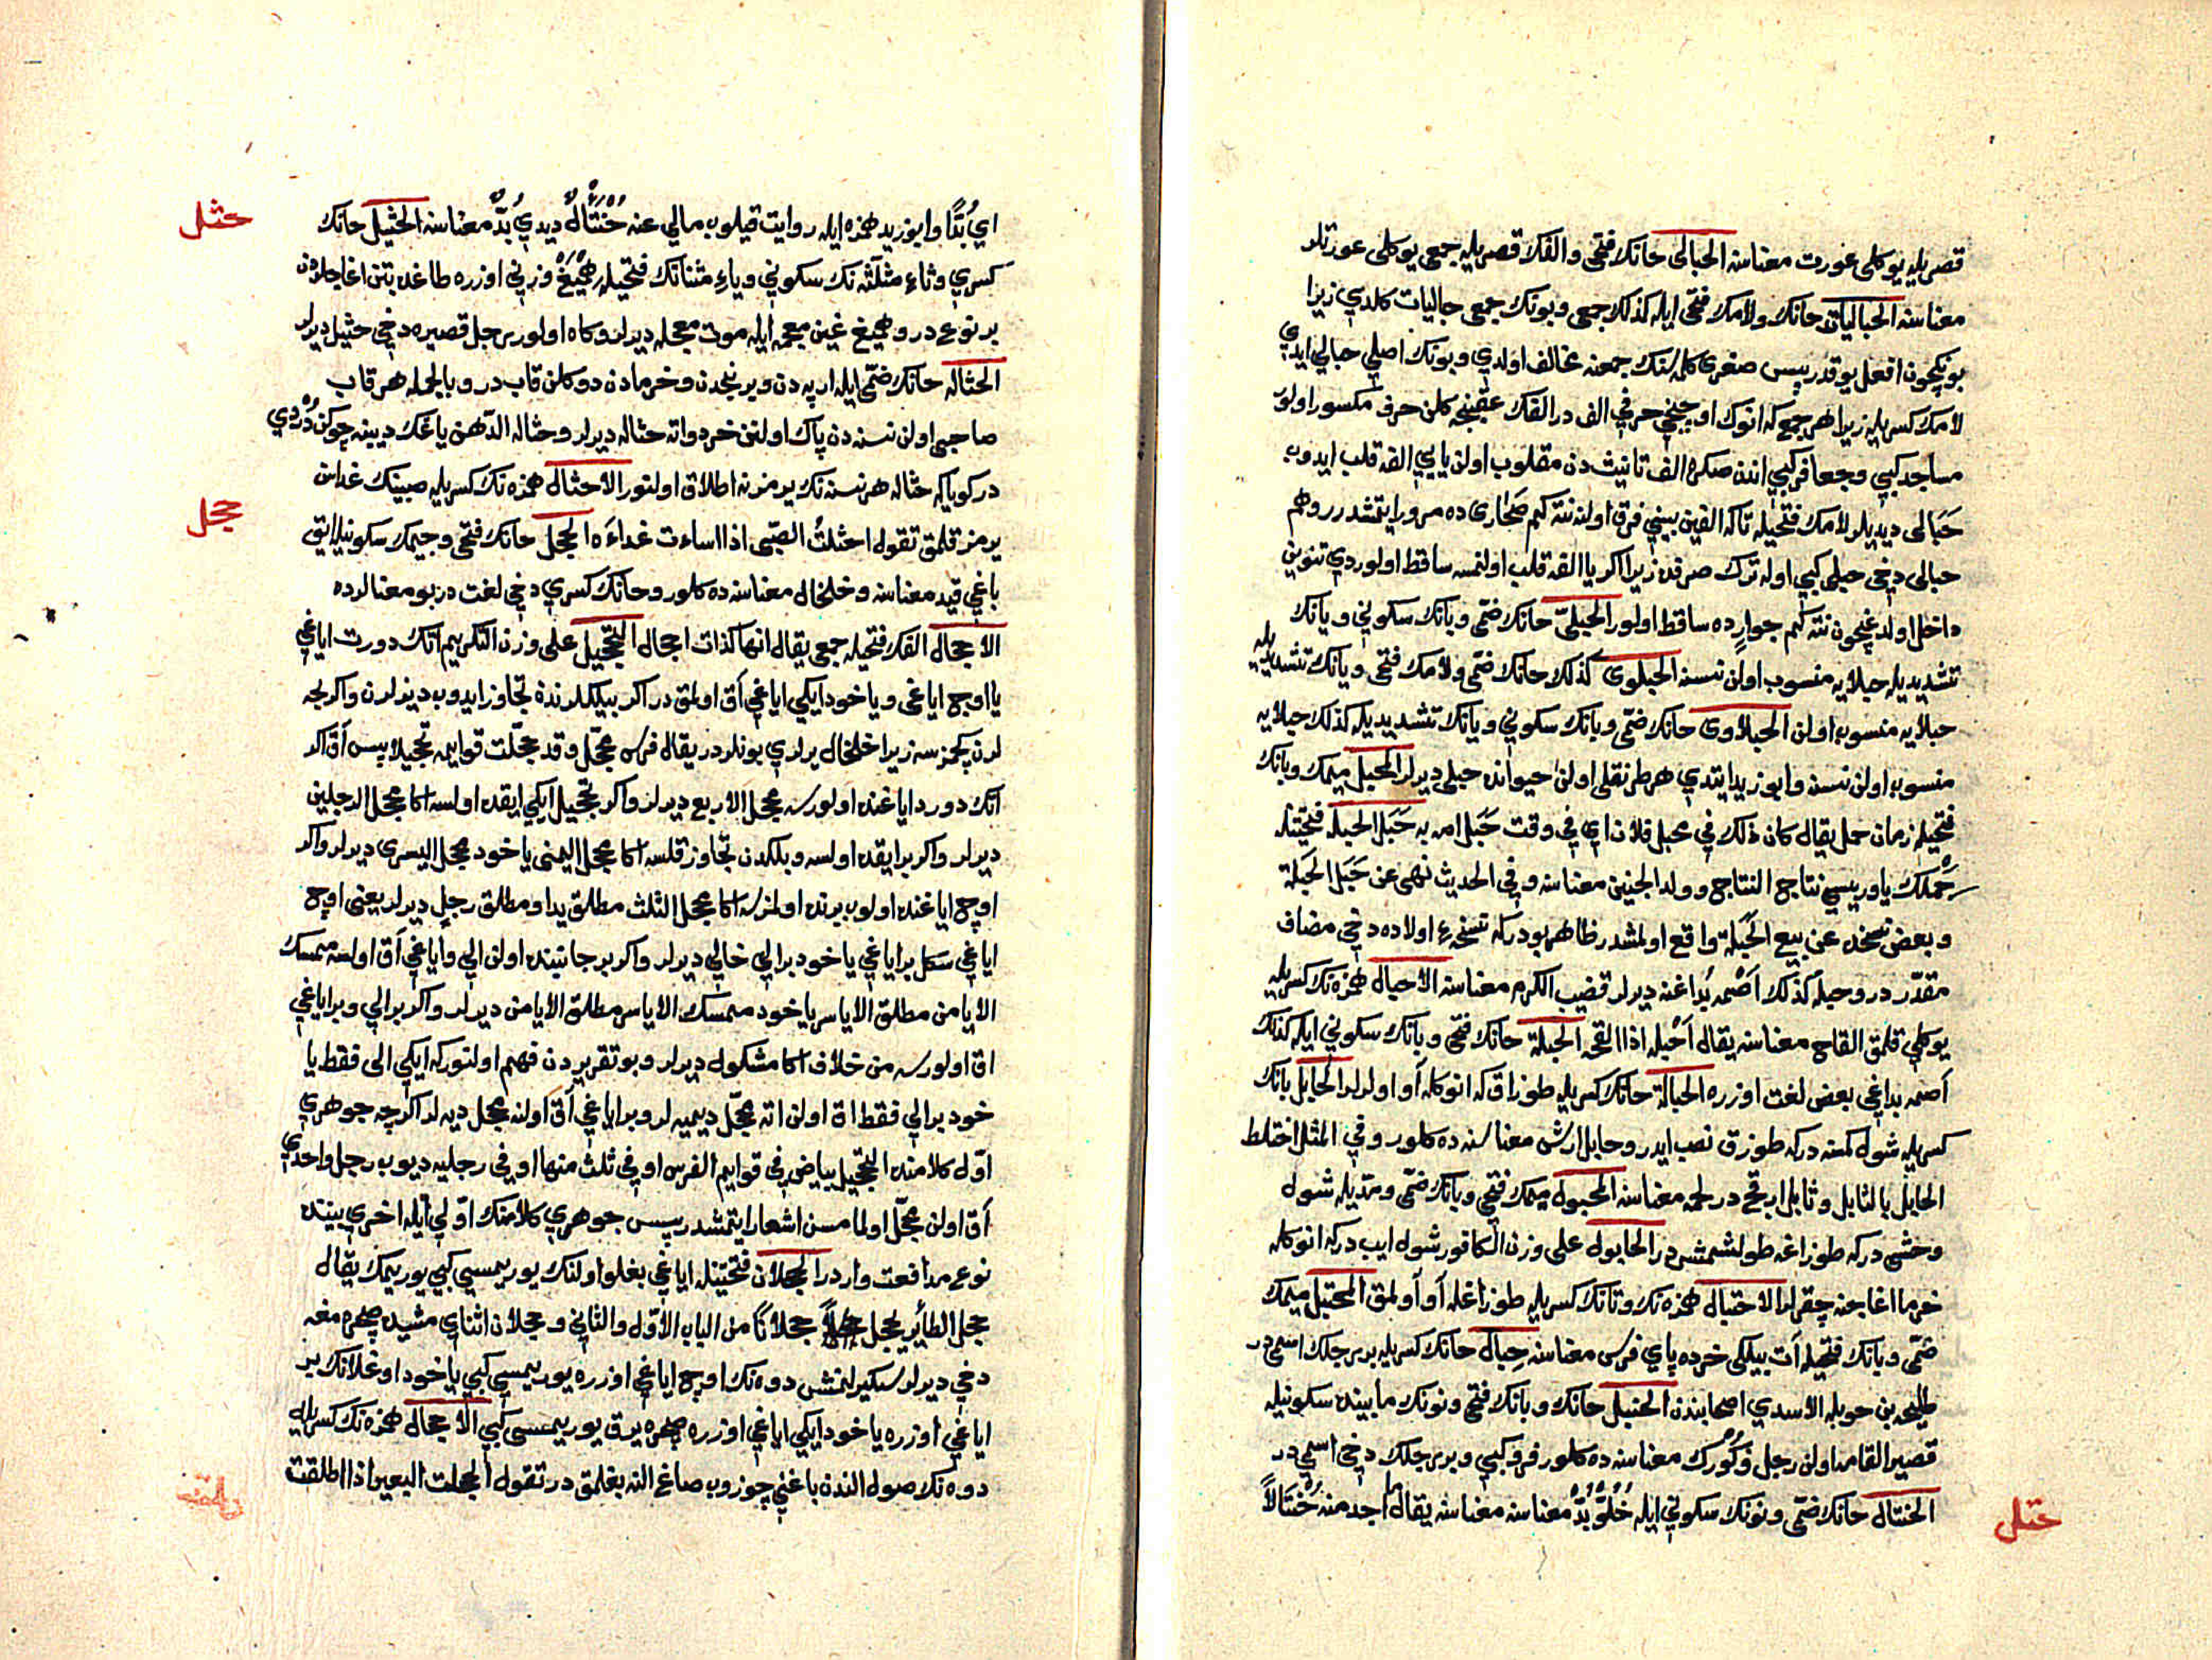 قصريله يوكلى عورت معناسنه الحبالى حانك فتحى والفك قصريله جمعى يوكلى عورتلر
معناسنه الحباليات حانك ولامك فتحى ايله كذلك جمعى وبونك جمعى حباليات كلدي زيرا
بونكچون افعل يوقدر پس صغرى كلمه‌سنك جمعنه مخالف اولدي وبونك اصلى حبالي ايدي
لامك كسريله زيرا هر جمع كه انوك اوچنجي حرفي الف در الفك عقبنجه كلن حرف مكسور اولور
مساجد كبي وجعافر كبي اندن صكره الف تانيث دن مقلوب اولن يايي الفه قلب ايدوب
حَبَالى ديديلر لامك فتحيله تاكه الفين بيني فرق اولنه نته كم صَحَارى ده مرور ايتمشدر وهم
حبالى دخي حبلى كبي اوله ترك صرفده زيرا اكر يا الفه قلب اولنمسه ساقط اولوردي تنوين
داخل اولدغيچون نته كم جوارٍ ده ساقط اولور الحبليّ حانك ضمّى وبانك سكوني ويانك
تشديديله حبلايه منسوب اولن نسنه الحبلوى كذلك حانك ضمّى ولامك فتحى ويانك تشديديله
حبلايه منسوب اولن الحبلاوى حانك ضمّى وبانك سكوني ويانك تشديديله كذلك حبلايه
منسوب اولن نسنه وابو زيد ايتدي هر طرنقلى اولن حيوانه حبلى ديرلر المحبل ميمك وبانك
فتحيله زمان حمل يقال كان ذلك في محبل فلان اي في وقت حَبَل امه به حَبَل الحبله فتحتينله
حَمْلك ياوريسي نتاج النتاج وولد الجنين معناسنه وفي الحديث نهى عن حَبَل الحَبَلة
وبعض نسخه‌ده عن بيع الحَبَلة واقع اولمشدر ظاهر بودركه نسخهٔ اولاده دخي مضاف
مقدّر در وحبله كذلك اَصْمه بُداغنه ديرلر قضيب الكرم معناسنه الاحبال همزه‌نك كسريله
يوكلي قلمق القاح معناسنه يقال اَحْبله اذا القحه الحبلة حانك فتحى وبانك سكوني ايله كذلك
اَصمه بداغي بعض لغت اوزره الحبالة حانك كسريله طوزاق كه انوكله آو اولرلر الحابل بانك
كسريله شول كمسه دركه طوزاق نصب ايدر وحابل ارش معناسنه ده كلور وفي المثل اختلط
الحابل بالنابل ونابل ارقج در لحمه معناسنه المحبول ميمك فتحى وبانك ضمّى ومدّيله شول
وحشى دركه طوزاغه طولشمش در الحابول على وزن الكافور شول ايب دركه انوكله
خرما اغاجنه چقرلر الاحتبال همزه‌نك وتانك كسريله طوزاغله آو آولمق المحتبل ميمك
ضمّى وبانك فتحيله آت بيلكى خرده پاي فرس معناسنه حِبال حانك كسريله بر رجلك اسمى در
طليحه بن خويلد الاسدي اصحابندن الحنبل حانك وبانك فتحى ونونك مابينده سكونيله
قصير القامه اولن رجل وكُورك معناسنه ده كلور فرو كبي وبر رجلك دخي اسمى در
الحنتال حانك ضمّى ونونك سكوني ايله خُلُوّ بُدّ معناسنه معناسنه يقال ما اجد منه حُنْتَالاً
حتل
اي بُدًّا وابو زيد همزه ايله روايت قيلوب مالي عنه حُنْتَأْلٌ ديدي بُدٌّ معناسنه الحثيل حانك
حثل
كسري وثاءِ مثلّثه‌نك سكوني وياءِ مثناتك فتحيله هِمْيَغ وزني اوزره طاغده بتن اغاجلردن
بر نوع در وهميغ غين معجمه ايله موت معجله ديرلر وكاه اولور رجل قصيره دخي حثيل ديرلر
الحثاله حانك ضمّى ايله ارپه‌دن وبرنجدن وخرمادن دوكلن قاب در وبالجمله هر قاب
صاحبى اولن نسنه‌دن پاك اولنن خرد واته حثاله ديرلر وحثاله الدّهن ياغك ديبنه چوكن دُردي
در كوياكه حثاله هر نسنه‌نك يرمزنه اطلاق اولنور الاحثال همزه‌نك كسريله صبينك غداسن
يرمز قلمق تقول احثلتُ الصّبى اذا اساءت غداءَه الحجل حانك فتحى وجيمك سكونيله ايق
حجل
باغي قيد معناسنه وخلخال معناسنه ده كلور وحانك كسري دخي لغت در بو معنالرده
الاحجال الفك فتحيله جمعى يقال انها كذات احجال التحجيل على وزن التكريم اتك دورت اياغي
يا اوچ اياغى ويا خود ايكي اياغي آق اولمق در اكر بيلكلرندن تجاوز ايدوب ديزلرن واكرلجه
لرن كچمزسه زيرا خلخال يرلري بونلردر يقال فرس محجّل وقد حجّلت قوايمه تحجيلا پس آق اكر
اتك دورد اياغنده اولورسه محجل الاربع ديرلر واكر تحجيل ايكي ايقده اولسه اكا محجل الرجلين
ديرلر واكر بر ايقده اولسه وبلكدن تجاوز قلسه اكا محجل اليمنى ياخود محجل اليسرى ديرلر واكر
اوچ اياغنده اولوب برنده اولمزسه اكا محجل الثلث مطلق يد او مطلق رجل ديرلر يعنى اوچ
اياغي سكل بر اياغي ياخود برالي خالي ديرلر واكر بر جانبنده اولن الي واياغي آق اولسه ممسك
الايامن مطلق الاياسر ياخود ممسك الاياسر مطلق الايامن ديرلر واكر برالي وبر اياغي
اق اولورسه من خلاف اكا مشكول ديرلر وبو تقريردن فهم اولنور كه ايكي الى فقط يا
خود برالي فقط اق اولن اته محجّل ديميه‌لر وبر اياغي آق اولنه محجل ديه‌لر اكرچه جوهري
اوّل كلامنده التحجيل بياض في قوايم الفرس او في ثلث منها او في رجليه ديوب رجل واحدي
آق اولن محجّل اولمامسن اشعار ايتمشدر پس جوهري كلامنك اوّلي ايله اخري بيننده
نوع مدافعت واردر الحجلان فتحتينله اياغي بغلو اولنك يوريمسي كبي يوريمك يقال
حجل الطائر يحجل حجلانًا من الباب الاوّل والثاني وحجلان اثناي مشيده صچرمغه
دخي ديرلر سكيرلنمش دوه‌نك اوچ اياغي اوزره يوريمسي كبي ياخود اوغلانك بر
اياغي اوزره ياخود ايكي اياغي اوزره صچره‌يرق يوريمسى كبي الاحجال همزه‌نك كسريله
دوه‌نك صول الندن باغني چوزوب صاغ النه بغلمق در تقول احجلت البعير اذا اطلقت